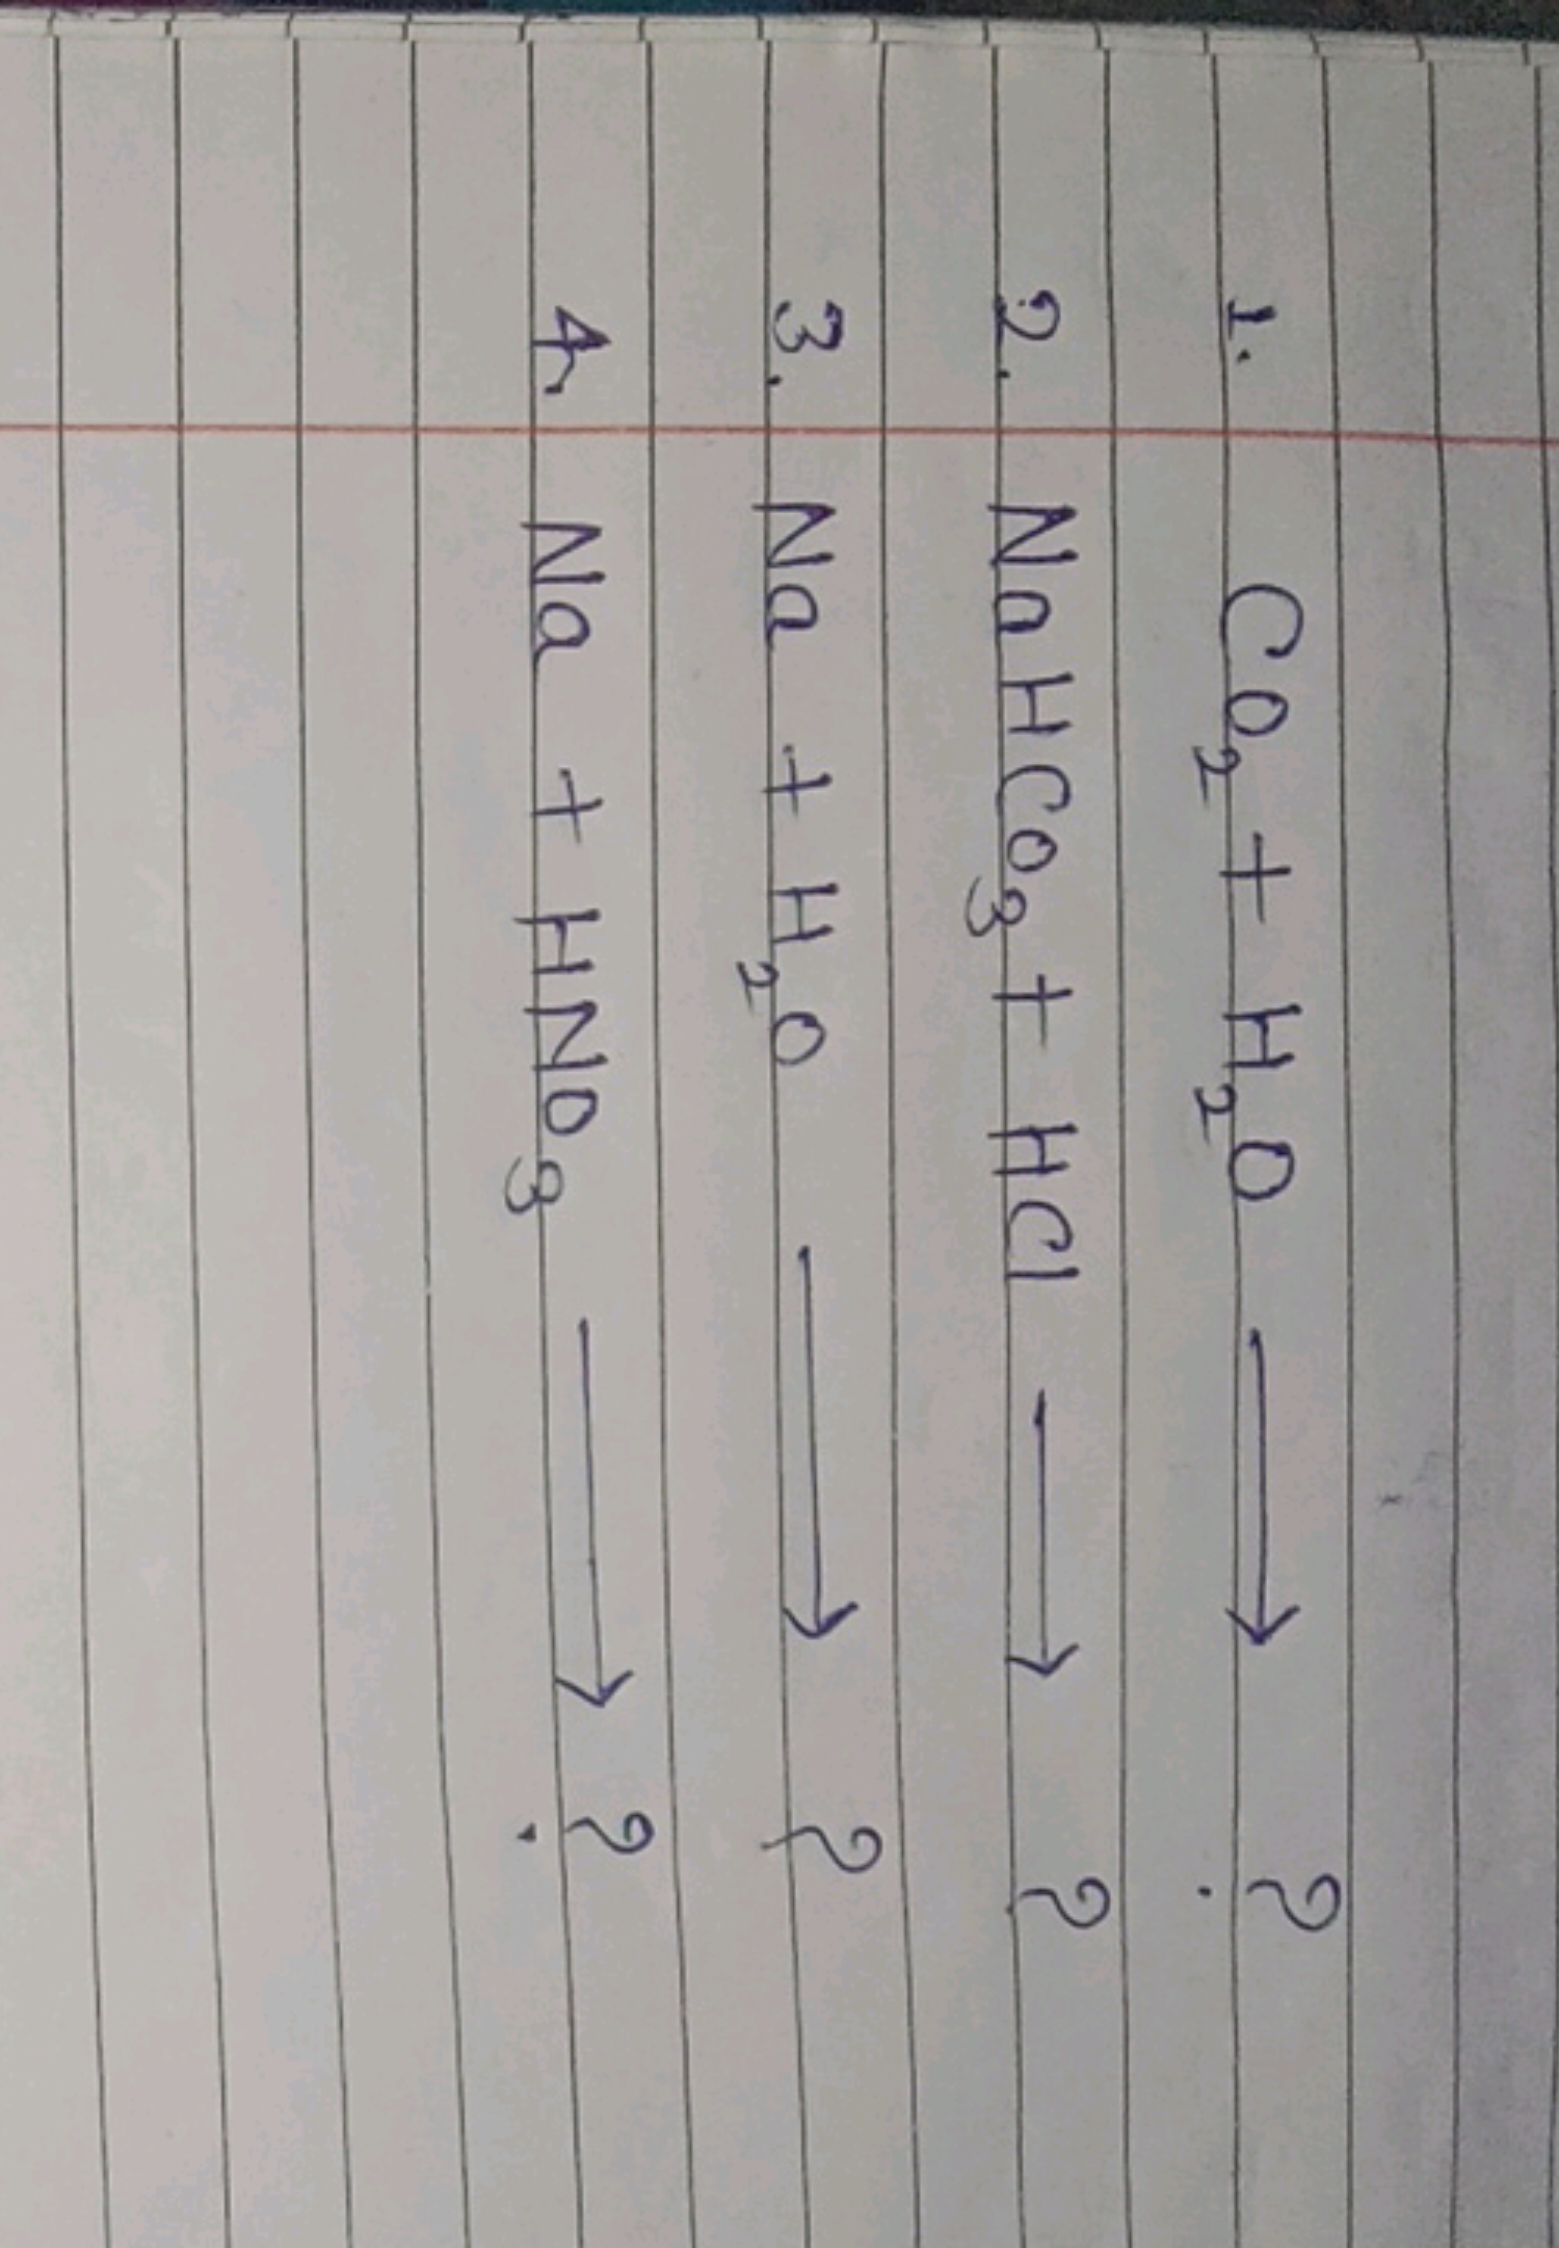 1. CO₂ + H₂O ⟶ ?
2. NaHCO₃ + HCl ⟶ ?
3. Na + H₂O ⟶ ?
4. Na + HNO₃ ⟶ ?